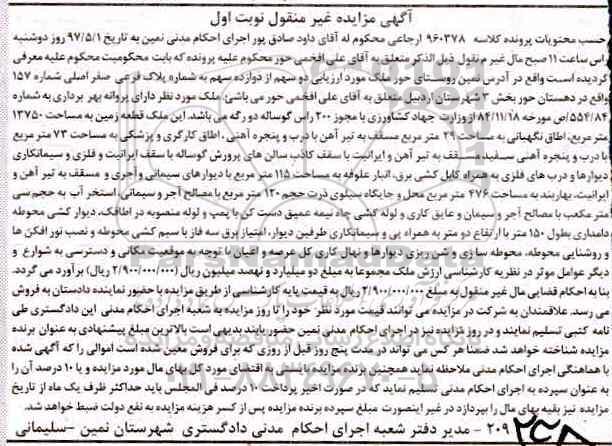 آگهی مزایده غیر منقول نوبت اول
حسب محتویات پرونده کلاسه ۹۶۰۳۷۸ ارجاعی محکوم له آقای داود صادق پور اجرای احکام مدنی نمین به تاریخ ۹۷/۵/۱ روز دوشنبه
راس ساعت ۱۱ صبح مال غیر منقول ذیل الذکر متعلق به آقای علی افخمی حور محکوم علیه پرونده که بابت محکومیت محکوم علیه معرفی
گردیده است واقع در آدرس نمین روستای حور ملک مورد ارزیابی دو سهم از دوازده سهم به شماره پلاک فرعی صفر اصلی شماره ۱۵۷
واقع در دهستان حور بخش ۳ شهرستان اردبیل متعلق به آقای علی افخمی حور می باشد. ملک مورد نظر دارای پروانه بهر برداری به شماره
۵۵۴/۸۴/ص مورخه ۸۴/۱۱/۱۸ از وزارت جهاد کشاورزی با مجوز ۲۰۰ راس گوساله دو رگه می باشد. این ملک قطعه زمین به مساحت ۱۳۷۵۰
متر مربع، اطاق نگهبانی به مساحت ۲۹ متر مربع مسقف به تیر آهن با درب و پنجره آهنی، اطاق کارگری و پزشکی به مساحت ۷۳ متر مربع
با درب و پنجره آهنی سفید مسقف به تیر آهن و ایرانیت با سقف کاذب سالن های پرورش گوساله با سقف ایرانیت و فلزی و سیمانکاری
دیوارها و درب های فلزی به همراه کابل کشی برق، انبار علوفه به مساحت ۱۱۵ متر مربع با دیوارهای سیمانی و آجری و مسقف به تیر آهن و
ایرانیت، بهاربند به مساحت ۴۷۶ متر مربع محل و جایگاه سیلوی ذرت حجم ۱۲۰ متر مربع با مصالح آجر و سیمانی، استخر آب به حجم سی
متر مکعب با مصالح آجر و سیمان و عایق کاری و لوله کشی چاه نیمه عمیق دست کن با پمپ و لوله منصوبه در اطاقک، دیوار کشی محوطه
دامداری بطول ۱۵۰ متر با ارتفاع دو متر به همراه پی و سیمانکاری طرفین دیوار، امتیاز برق سه فاز با سیم کشی محوطه و نصب نور افکن ها
و روشنایی محوطه، محوطه سازی و شن ریزی دیوارها و نهال کاری کل عرصه و اعیان با توجه به موقعیت مکانی و دسترسی به شوارع و
دیگر عوامل موثر در نظریه کارشناسی ارزش ملک مجموعا به مبلغ دو میلیارد و نهصد میلیون ریال (۲/۹۰۰/۰۰۰/۰۰۰ ریال) برآورد می گردد.
بنا به احکام قضایی مال غیر منقول به مبلغ ۲/۹۰۰/۰۰۰/۰۰۰ ریال به قیمت پایه کارشناسی از طریق مزایده با حضور نماینده دادستان به فروش
می رسد. علاقمندان به شرکت در مزایده می توانند قیمت مورد نظر خود را تا روز مزایده به شعبه اجرای احکام مدنی این دادگستری طی
نامه کتبی تسلیم نمایند و در روز مزایده نیز در اجرای احکام مدنی نمین حضور یابند بدیهی است بالاترین مبلغ پیشنهادی به عنوان برنده
مزایده شناخته خواهد شد ضمنا هر کس می تواند در مدت پنج روز قبل از روزی که برای فروش معین شده است اموالی را که آگهی شده
با هماهنگی اجرای احکام مدنی ملاحظه نماید همچنین برنده مزایده بایستی به اقتضای مورد کل بهای مال مورد مزایده و یا ۱۰ درصد آن را
به عنوان سپرده به اجرای احکام مدنی تسلیم نماید که در صورت اخیر پرداخت ۱۰ درصد فی المجلس باید حداکثر ظرف یک ماه از تاریخ
مزایده نیز بقیه بهای مال را بپردازد در غیر اینصورت مبلغ سپرده برنده مزایده پس از کسر هزینه مزایده به نفع دولت ضبط خواهد شد.
۲۰۹ - مدیر دفتر شعبه اجرای احکام مدنی دادگستری شهرستان نمین - سلیمانی